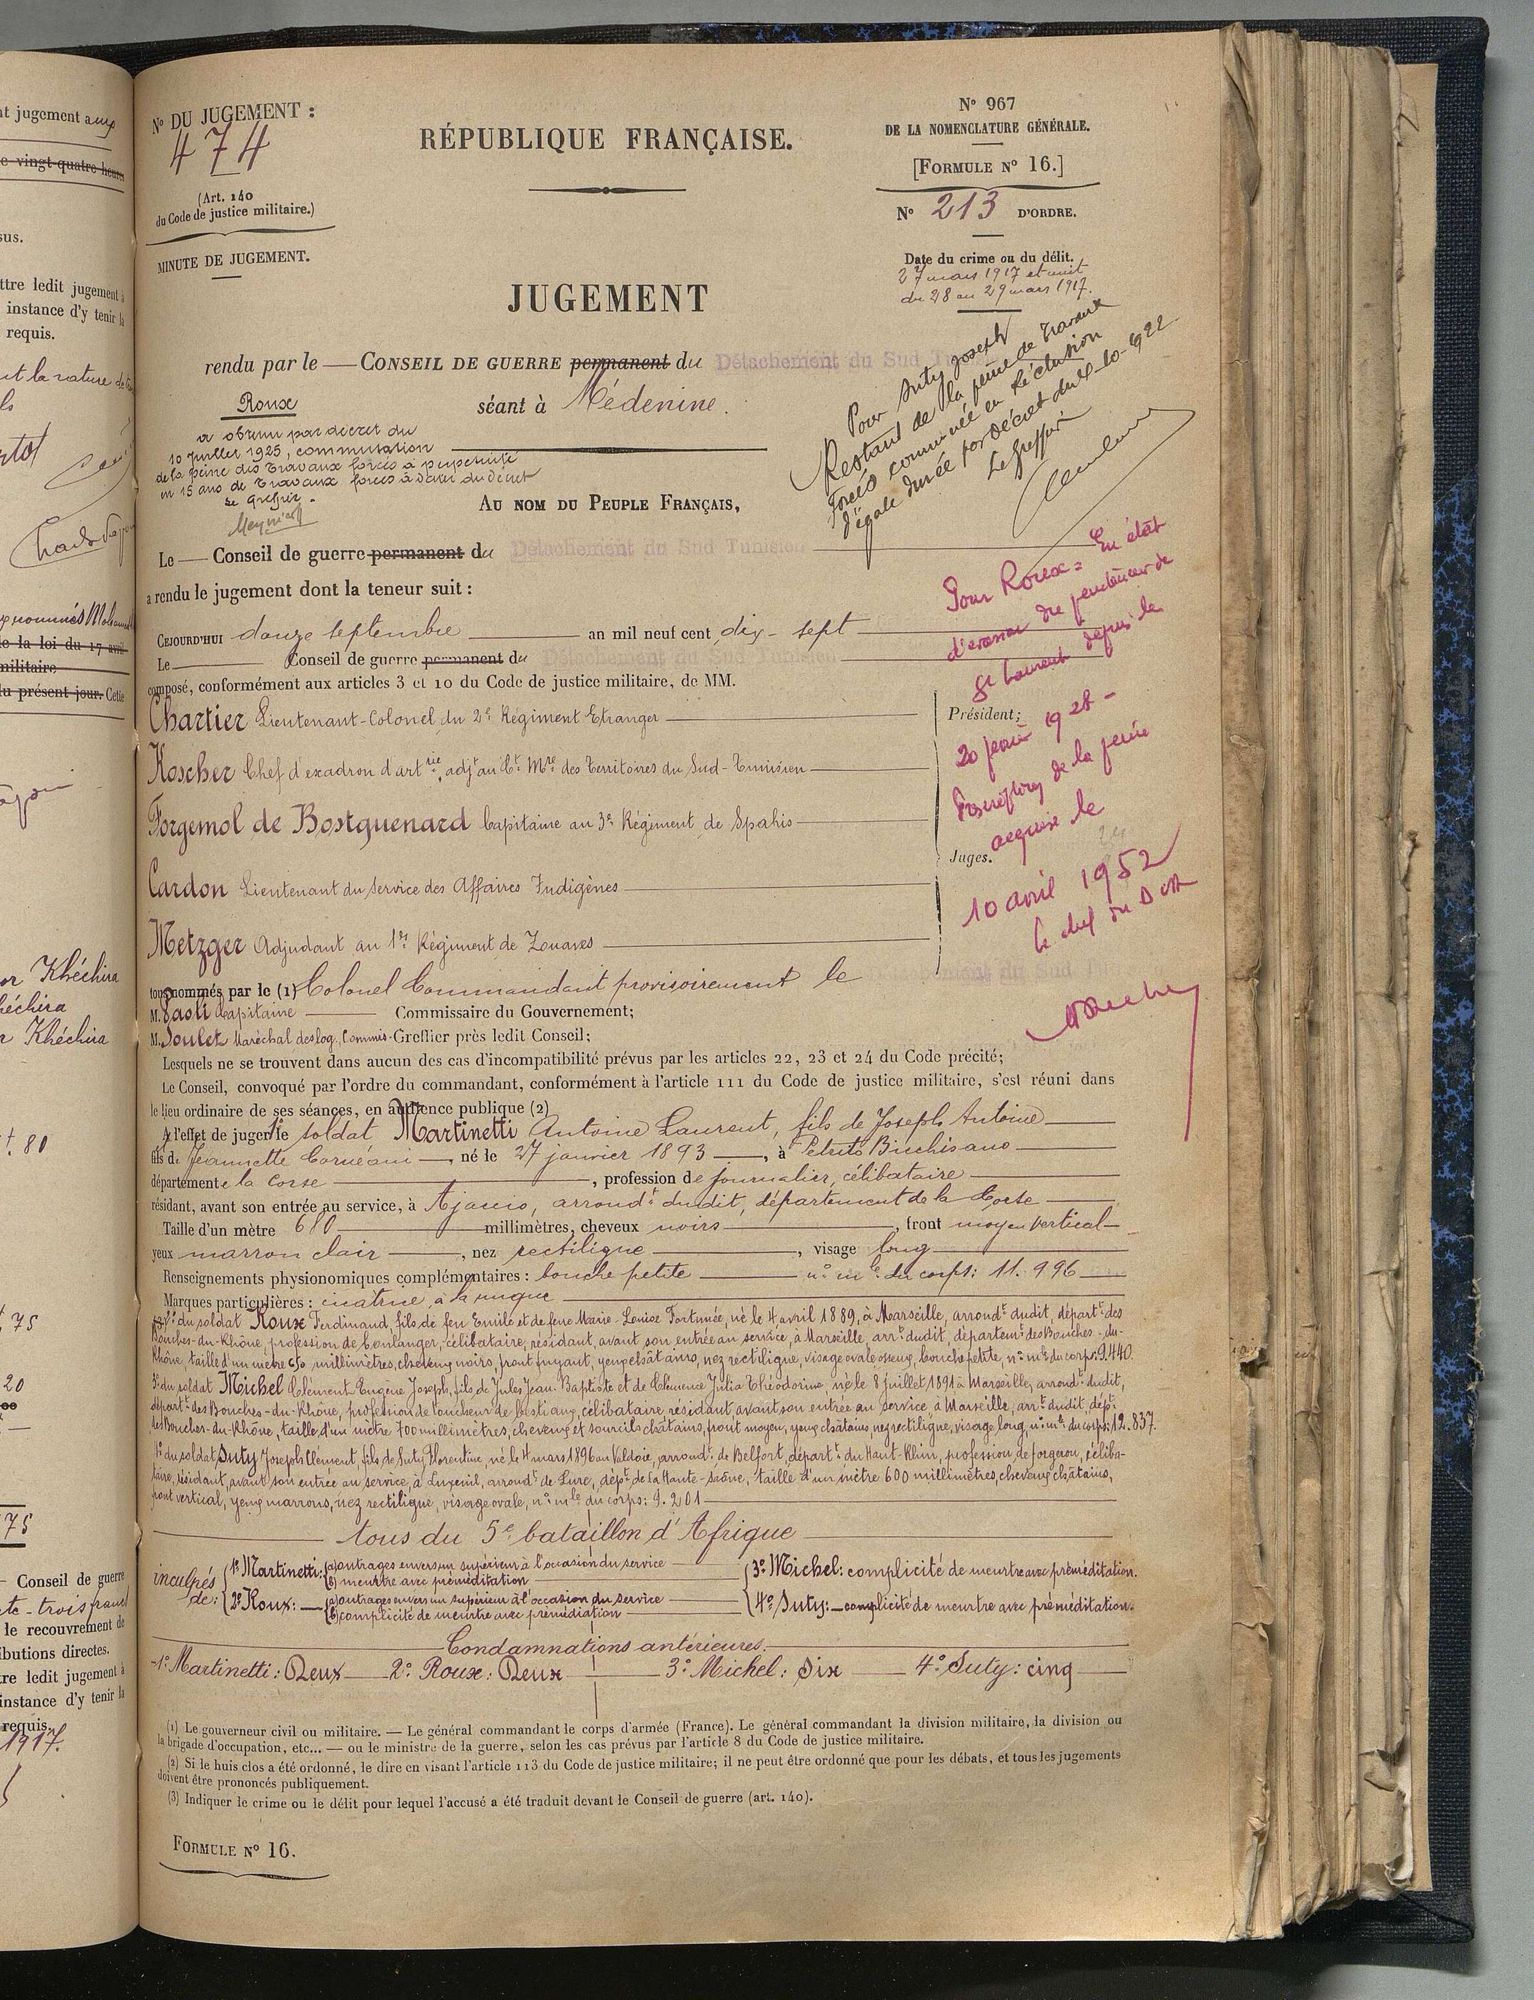 nt jugement aux
e vingt-quatre heures
sus.
ttre ledit jugement à
instance d'y tenir la
requis.
nt la nature de
ls
Charles
de la loi du 17 avril
militaire
du présent jour. Cette
or Khéchira
héchira
r Khéchira
80
75
20
75
Conseil de guerre
te-trois francs
le recouvrement de
ibutions directes.
re ledit jugement à
instance d'y tenir la
requis.
1917.
N° DU JUGEMENT :
474
(Art. 140
du Code de justice militaire.)
MINUTE DE JUGEMENT.
RÉPUBLIQUE FRANÇAISE.
N° 967
DE LA NOMENCLATURE GÉNÉRALE.
[FORMULE N° 16.]
N° 213 D'ORDRE.
Date du crime ou du délit.
27 mars 1917 et nuit
du 28 au 29 mars 1917.
JUGEMENT
rendu par le — CONSEIL DE GUERRE permanent du Détachement du Sud Tunisien
séant à Médenine.
Roux
a obtenu par décret du
10 Juillet 1925, commutation
de la peine des Travaux forcés à perpétuité
en 15 ans de Travaux forcés à dater du décret
Le Greffier
Pour Suty Joseph
Restant de la peine de Travaux
Forcés commuée en Réclusion
d'égale durée par Décret du -10-922
Le Greffier
AU NOM DU PEUPLE FRANÇAIS,
Le — Conseil de guerre permanent du Détachement du Sud Tunisien
a rendu le jugement dont la teneur suit :
Pour Roux = En état
d'évasion du pénitencier de
St Laurent depuis le
20 janvier 1928 -
Prescription de la peine
acquise le
10 avril 1952
le chef du
CEJOURD'HUI douze septembre an mil neuf cent dix-sept
Le Conseil de guerre permanent du Détachement du Sud Tunisien
composé, conformément aux articles 3 et 10 du Code de justice militaire, de MM.
Chartier Lieutenant-Colonel du 2e Régiment Etranger
Président;
Koscher Chef d'escadron d'artrie, adjt au Ct Mre des Territoires du Sud-Tunisien
Forgemol de Bostquenard Capitaine au 3e Régiment de Spahis
Juges.
Cardon Lieutenant du Service des Affaires Indigènes
Metzger Adjudant au 1er Régiment de Zouaves
tous nommés par le (1) Colonel Commandant provisoirement le Détachement du Sud Tunisien
M. Paoli Capitaine Commissaire du Gouvernement;
M. Soulet Maréchal des log., Commis-Greffier près ledit Conseil;
Lesquels ne se trouvent dans aucun des cas d'incompatibilité prévus par les articles 22, 23 et 24 du Code précité;
Le Conseil, convoqué par l'ordre du commandant, conformément à l'article 111 du Code de justice militaire, s'est réuni dans
le lieu ordinaire de ses séances, en audience publique (2)
A l'effet de juger 1° le soldat Martinetti Antoine Laurent, fils de Joseph Antoine
fils de Jeannette Cornéani, né le 27 janvier 1893, à Petreto Bichisano
département de la Corse, profession de journalier, célibataire
résidant, avant son entrée au service, à Ajaccio, arrondt dudit, département de la Corse
Taille d'un mètre 680 millimètres, cheveux noirs, front moyen vertical
yeux marron clair, nez rectiligne, visage long
Renseignements physionomiques complémentaires : bouche petite n° mle du corps: 11.996
Marques particulières : cicatrice à la nuque
2° du soldat Roux Ferdinand, fils de feu Emile et de feue Marie-Louise Fortunée, né le 4 avril 1889, à Marseille, arrondt dudit, départt des
Bouches-du-Rhône, profession de boulanger, célibataire, résidant, avant son entrée au service, à Marseille, arrt dudit, départemt des Bouches-du-
Rhône, taille d'un mètre 650 millimètres, cheveux noirs, front fuyant, yeux châtains, nez rectiligne, visage ovale osseux, bouche petite, n° mle du corps: 9.440.
3° du soldat Michel Clément Eugène Joseph, fils de Jules Jean-Baptiste et de Clémence Julia Théodorine, né le 8 juillet 1891 à Marseille, arrondt dudit,
départt des Bouches-du-Rhône, profession de toucheur de bestiaux, célibataire, résidant avant son entrée au service à Marseille, arrt dudit, dépt
des Bouches-du-Rhône, taille d'un mètre 700 millimètres, cheveux et sourcils châtains, front moyen, yeux châtains, nez rectiligne, visage long, n° mle du corps: 12.837.
4° du soldat Suty Joseph Clément, fils de Suty Florentine, né le 4 mars 1896 au Valdoie, arrondt de Belfort, départt du Haut-Rhin, profession de forgeron, céliba-
taire, résidant, avant son entrée au service, à Luxeuil, arrondt de Lure, dépt de la Haute-Saône, taille d'un mètre 600 millimètres, cheveux châtains,
front vertical, yeux marrons, nez rectiligne, visage ovale, n° mle du corps: 9.201
tous du 5e bataillon d'Afrique
inculpés de:
1° Martinetti: a) outrages envers un supérieur à l'occasion du service
b) meurtre avec préméditation
2° Roux: a) outrages envers un supérieur à l'occasion du service
b) complicité de meurtre avec préméditation
3° Michel: complicité de meurtre avec préméditation.
4° Suty: complicité de meurtre avec préméditation.
Condamnations antérieures.
1° Martinetti: Deux — 2° Roux: Deux — 3° Michel: Six — 4° Suty: cinq
(1) Le gouverneur civil ou militaire. — Le général commandant le corps d'armée (France). Le général commandant la division militaire, la division ou
la brigade d'occupation, etc... — ou le ministre de la guerre, selon les cas prévus par l'article 8 du Code de justice militaire.
(2) Si le huis clos a été ordonné, le dire en visant l'article 113 du Code de justice militaire; il ne peut être ordonné que pour les débats, et tous les jugements
doivent être prononcés publiquement.
(3) Indiquer le crime ou le délit pour lequel l'accusé a été traduit devant le Conseil de guerre (art. 140).
FORMULE N° 16.